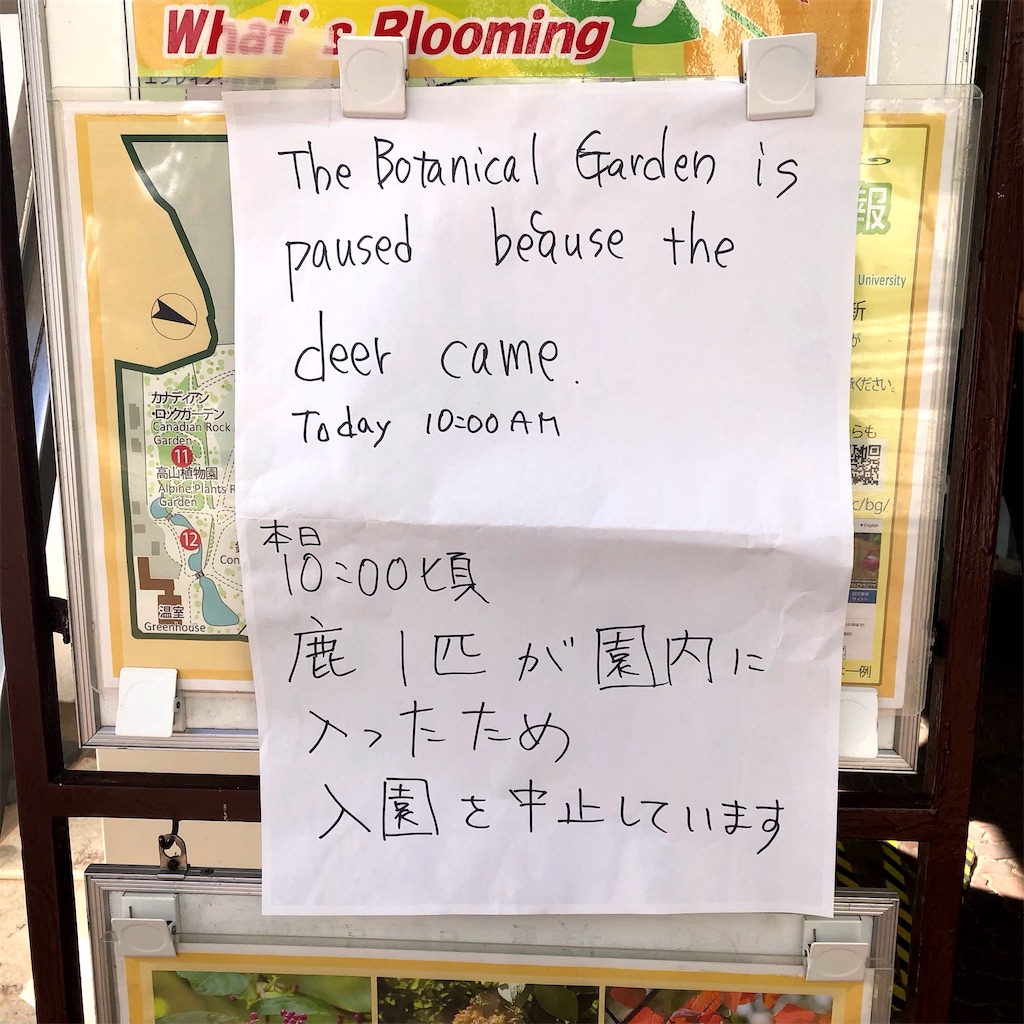 What's Blooming
The Botanical Garden is
paused because the
deer came.
Today 10:00 AM
本日
10:00頃
鹿 1匹が園内に
入ったため
入園を中止しています
カナディアン
・ロックガーデン
Canadian Rock
Garden
11
高山植物園
Alpine Plants R
Garden
12
Con
温室
Greenhouse
報
University
新
が
ください。
らも
c/bg/
English
は一例